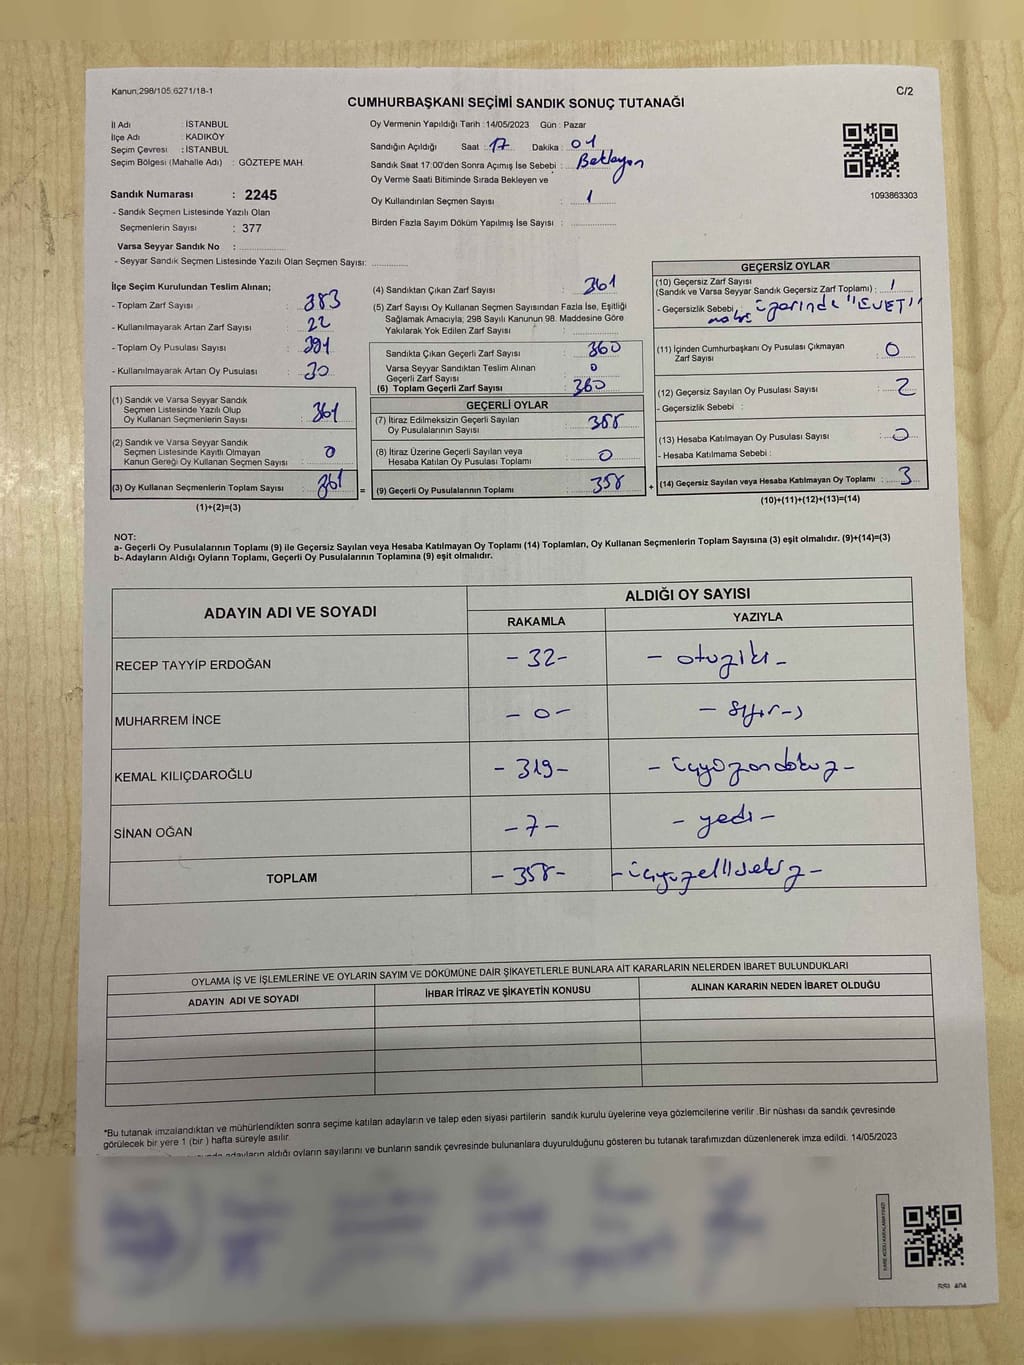 Kanun:298/105.6271/18-1
C/2
CUMHURBAŞKANI SEÇİMİ SANDIK SONUÇ TUTANAĞI
İl Adı : İSTANBUL
İlçe Adı : KADIKÖY
Seçim Çevresi : İSTANBUL
Seçim Bölgesi (Mahalle Adı) : GÖZTEPE MAH.
Sandık Numarası : 2245
- Sandık Seçmen Listesinde Yazılı Olan
Seçmenlerin Sayısı : 377
Varsa Seyyar Sandık No :
- Seyyar Sandık Seçmen Listesinde Yazılı Olan Seçmen Sayısı:
Oy Vermenin Yapıldığı Tarih :14/05/2023 Gün : Pazar
Sandığın Açıldığı Saat : 17 Dakika : 01
Sandık Saat 17:00'den Sonra Açımış İse Sebebi : Bekleyen
Oy Verme Saati Bitiminde Sırada Bekleyen ve
Oy Kullandırılan Seçmen Sayısı : 1
Birden Fazla Sayım Döküm Yapılmış İse Sayısı :
1093863303
İlçe Seçim Kurulundan Teslim Alınan;
- Toplam Zarf Sayısı : 383
- Kullanılmayarak Artan Zarf Sayısı : 22
- Toplam Oy Pusulası Sayısı : 391
- Kullanılmayarak Artan Oy Pusulası : 30
(1) Sandık ve Varsa Seyyar Sandık
Seçmen Listesinde Yazılı Olup
Oy Kullanan Seçmenlerin Sayısı : 361
(2) Sandık ve Varsa Seyyar Sandık
Seçmen Listesinde Kayıtlı Olmayan
Kanun Gereği Oy Kullanan Seçmen Sayısı : 0
(3) Oy Kullanan Seçmenlerin Toplam Sayısı : 361
(1)+(2)=(3)
=
(4) Sandıktan Çıkan Zarf Sayısı : 361
(5) Zarf Sayısı Oy Kullanan Seçmen Sayısından Fazla İse, Eşitliği
Sağlamak Amacıyla, 298 Sayılı Kanunun 98. Maddesine Göre
Yakılarak Yok Edilen Zarf Sayısı :
Sandıkta Çıkan Geçerli Zarf Sayısı : 360
Varsa Seyyar Sandıktan Teslim Alınan
Geçerli Zarf Sayısı : 0
(6) Toplam Geçerli Zarf Sayısı : 360
GEÇERLİ OYLAR
(7) İtiraz Edilmeksizin Geçerli Sayılan
Oy Pusulalarının Sayısı : 358
(8) İtiraz Üzerine Geçerli Sayılan veya
Hesaba Katılan Oy Pusulası Toplamı : 0
(9) Geçerli Oy Pusulalarının Toplamı : 358
+
GEÇERSİZ OYLAR
(10) Geçersiz Zarf Sayısı
(Sandık ve Varsa Seyyar Sandık Geçersiz Zarf Toplamı) : 1
- Geçersizlik Sebebi : üzerinde "EVET"
(11) İçinden Cumhurbaşkanı Oy Pusulası Çıkmayan
Zarf Sayısı : 0
(12) Geçersiz Sayılan Oy Pusulası Sayısı : 2
- Geçersizlik Sebebi :
(13) Hesaba Katılmayan Oy Pusulası Sayısı : 0
- Hesaba Katılmama Sebebi :
(14) Geçersiz Sayılan veya Hesaba Katılmayan Oy Toplamı : 3
(10)+(11)+(12)+(13)=(14)
NOT:
a- Geçerli Oy Pusulalarının Toplamı (9) ile Geçersiz Sayılan veya Hesaba Katılmayan Oy Toplamı (14) Toplamları, Oy Kullanan Seçmenlerin Toplam Sayısına (3) eşit olmalıdır. (9)+(14)=(3)
b- Adayların Aldığı Oyların Toplamı, Geçerli Oy Pusulalarının Toplamına (9) eşit olmalıdır.
ADAYIN ADI VE SOYADI
ALDIĞI OY SAYISI
RAKAMLA YAZIYLA
RECEP TAYYİP ERDOĞAN - 32- - otuziki -
MUHARREM İNCE - 0 - - sıfır -
KEMAL KILIÇDAROĞLU - 319- - üçyüzondokuz -
SİNAN OĞAN - 7 - - yedi -
TOPLAM - 358- - üçyüzellisekiz -
OYLAMA İŞ VE İŞLEMLERİNE VE OYLARIN SAYIM VE DÖKÜMÜNE DAİR ŞİKAYETLERLE BUNLARA AİT KARARLARIN NELERDEN İBARET BULUNDUKLARI
ADAYIN ADI VE SOYADI İHBAR İTİRAZ VE ŞİKAYETİN KONUSU ALINAN KARARIN NEDEN İBARET OLDUĞU
*Bu tutanak imzalandıktan ve mühürlendikten sonra seçime katılan adayların ve talep eden siyasi partilerin sandık kurulu üyelerine veya gözlemcilerine verilir .Bir nüshası da sandık çevresinde
görülecek bir yere 1 (bir ) hafta süreyle asılır.
adayların aldığı oyların sayılarını ve bunların sandık çevresinde bulunanlara duyurulduğunu gösteren bu tutanak tarafımızdan düzenlenerek imza edildi. 14/05/2023